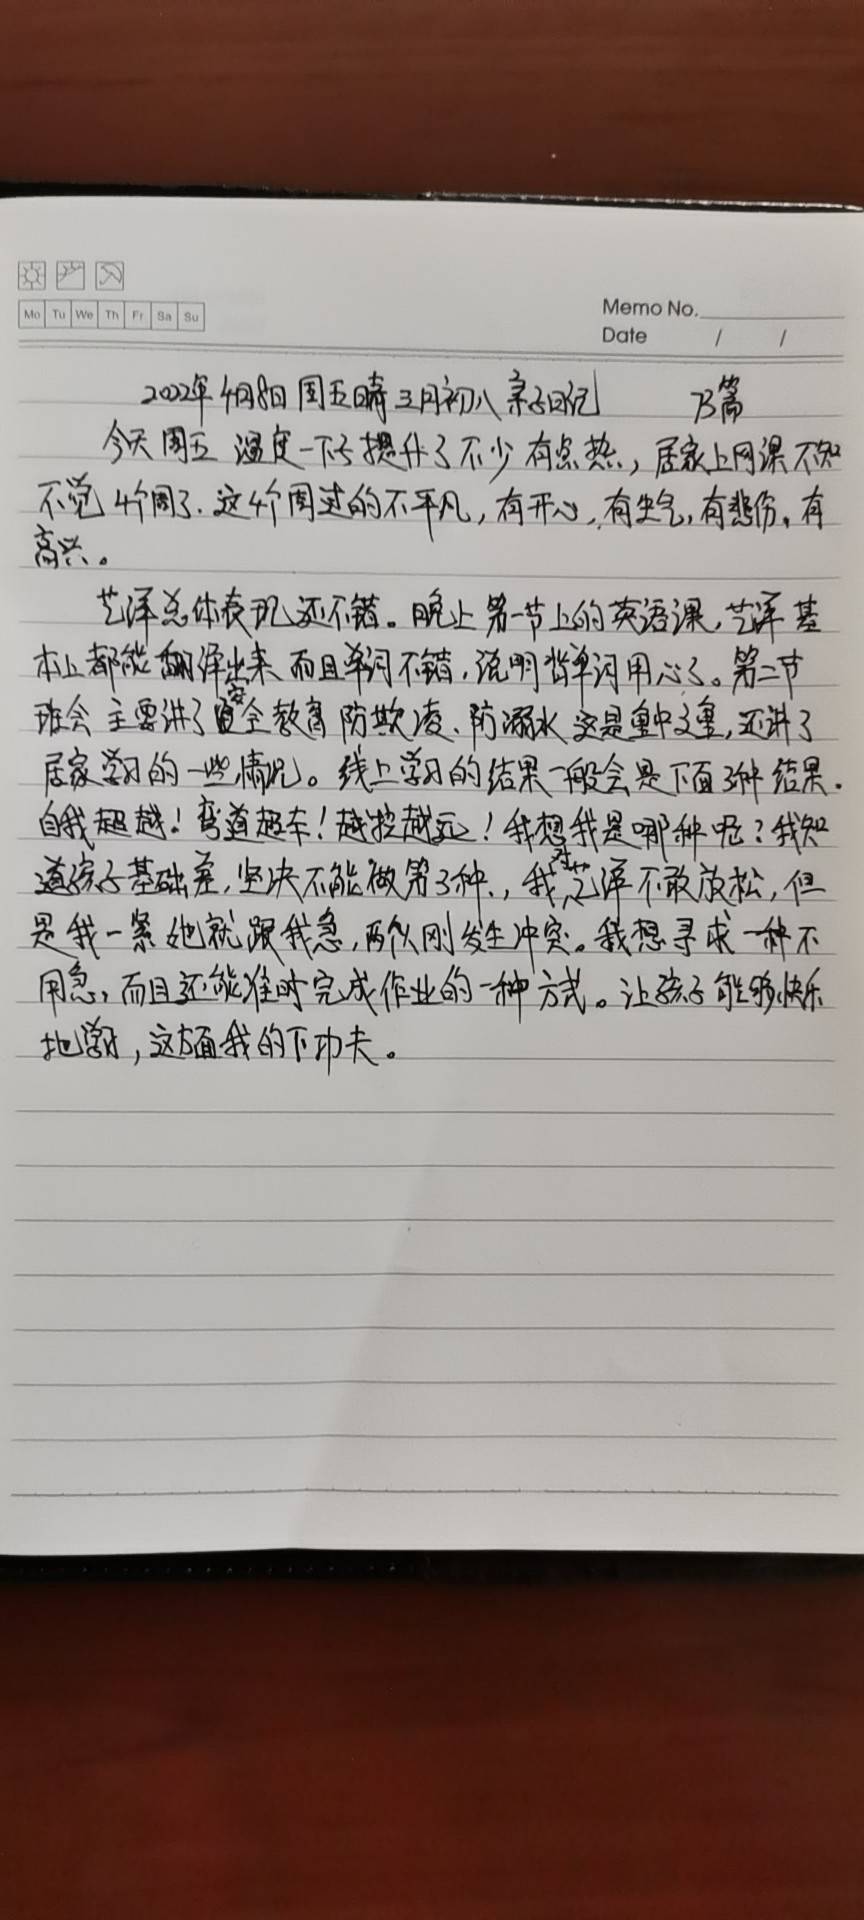 Mo Tu We Th Fr Sa Su
Memo No.
Date / /
2022年4月8日 周五晴 三月初八 亲子日记 73篇
今天周五 温度一下子提升了不少 有点热，居家上网课不知
不觉 4个周了. 这4个周过的不平凡，有开心，有生气，有悲伤，有
高兴。
艺泽总体表现还不错。晚上第一节上的英语课，艺泽基
本上都能翻译出来 而且单词不错，说明背单词用心了。第二节
班会 主要讲了安全教育 防欺凌、防溺水 这是重中之重，还讲了
居家学习的一些情况。线上学习的结果一般会是下面3种结果.
自我超越！弯道超车！越挖越远！我想我是哪种呢？我知
道孩子基础差，坚决不能做第3种，我对艺泽不敢放松，但
是我一紧她就跟我急，两个人刚发生冲突。我想寻求一种不
用急，而且还能准时完成作业的一种方式。让孩子能够快乐
地学习，这方面我的下功夫。